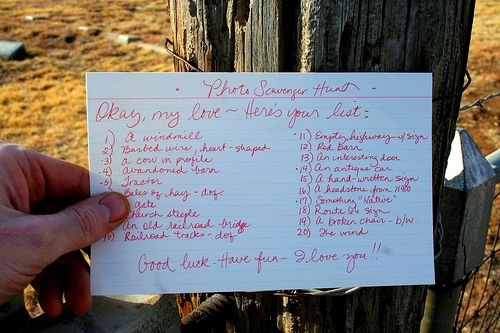 - Photo Scavenger Hunt -
Okay, my love ~ Here's your list:
1) A windmill
2) Barbed wire, heart-shaped
3) a cow in profile
4) Abandoned barn
5) Tractor
Bales of hay - dog
gate
church steeple
An old railroad bridge
10) Railroad tracks - dog
11) Empty highway - w/ sign
12) Red barn
13) An interesting door
14) An antique car
15) A hand-written sign
16) A headstone from
17) Something "Native"
18) Route 66 sign
19) A broken chair - b/w
20) The wind
Good luck - Have fun - I love you!!